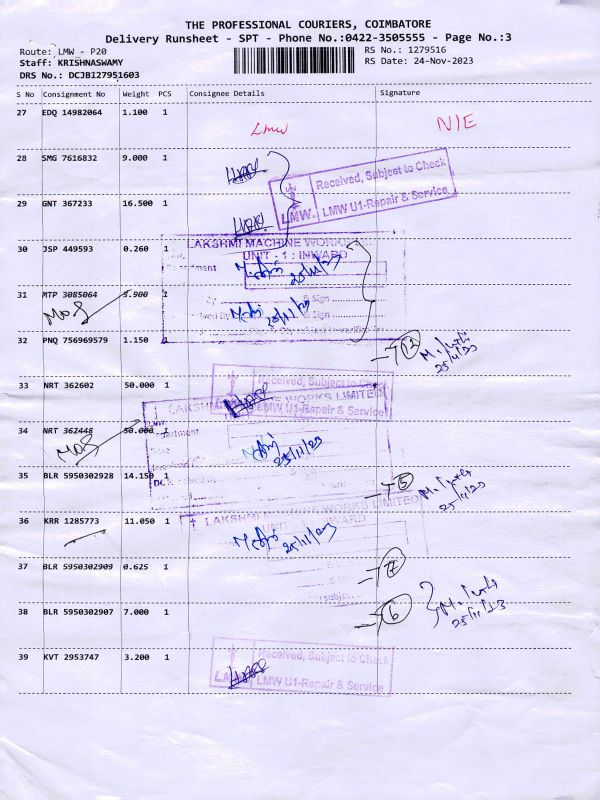 THE PROFESSIONAL COURIERS, COIMBATORE
Delivery Runsheet - SPT - Phone No.:0422-3505555 - Page No.:3
Route: LMW - P20
RS No.: 1279516
Staff: KRISHNASWAMY
RS Date: 24-Nov-2023
DRS No.: DCJBI27951603
S No Consignment No Weight PCS Consignee Details Signature
27 EDQ 14982064 1.100 1
Lmw
28 SMG 7616832 9.000 1
Received, Subject to Check
LMW. LMW U1-Repair & Service
29 GNT 367233 16.500 1
30 JSP 449593 0.260 1
LAKSHMI MACHINE WORKS
UNIT - 1 : INWARD
25/11/23
31 MTP 3085064 3.900 1
25/11/23
32 PNQ 756969579 1.150 1
25/11/23
33 NRT 362602 50.000 1
Received, Subject to Check
LMW U1-Repair & Service
34 NRT 362448 50.000 1
25/11/23
35 BLR 5950302928 14.150 1
5
25/11/23
36 KRR 1285773 11.050 1
LAKSHMI MACHINE WORKS LIMITED
25/11/23
37 BLR 5950302909 0.625 1
38 BLR 5950302907 7.000 1
6
25/11/23
39 KVT 2953747 3.200 1
Received, Subject to Check
LMW U1-Repair & Service